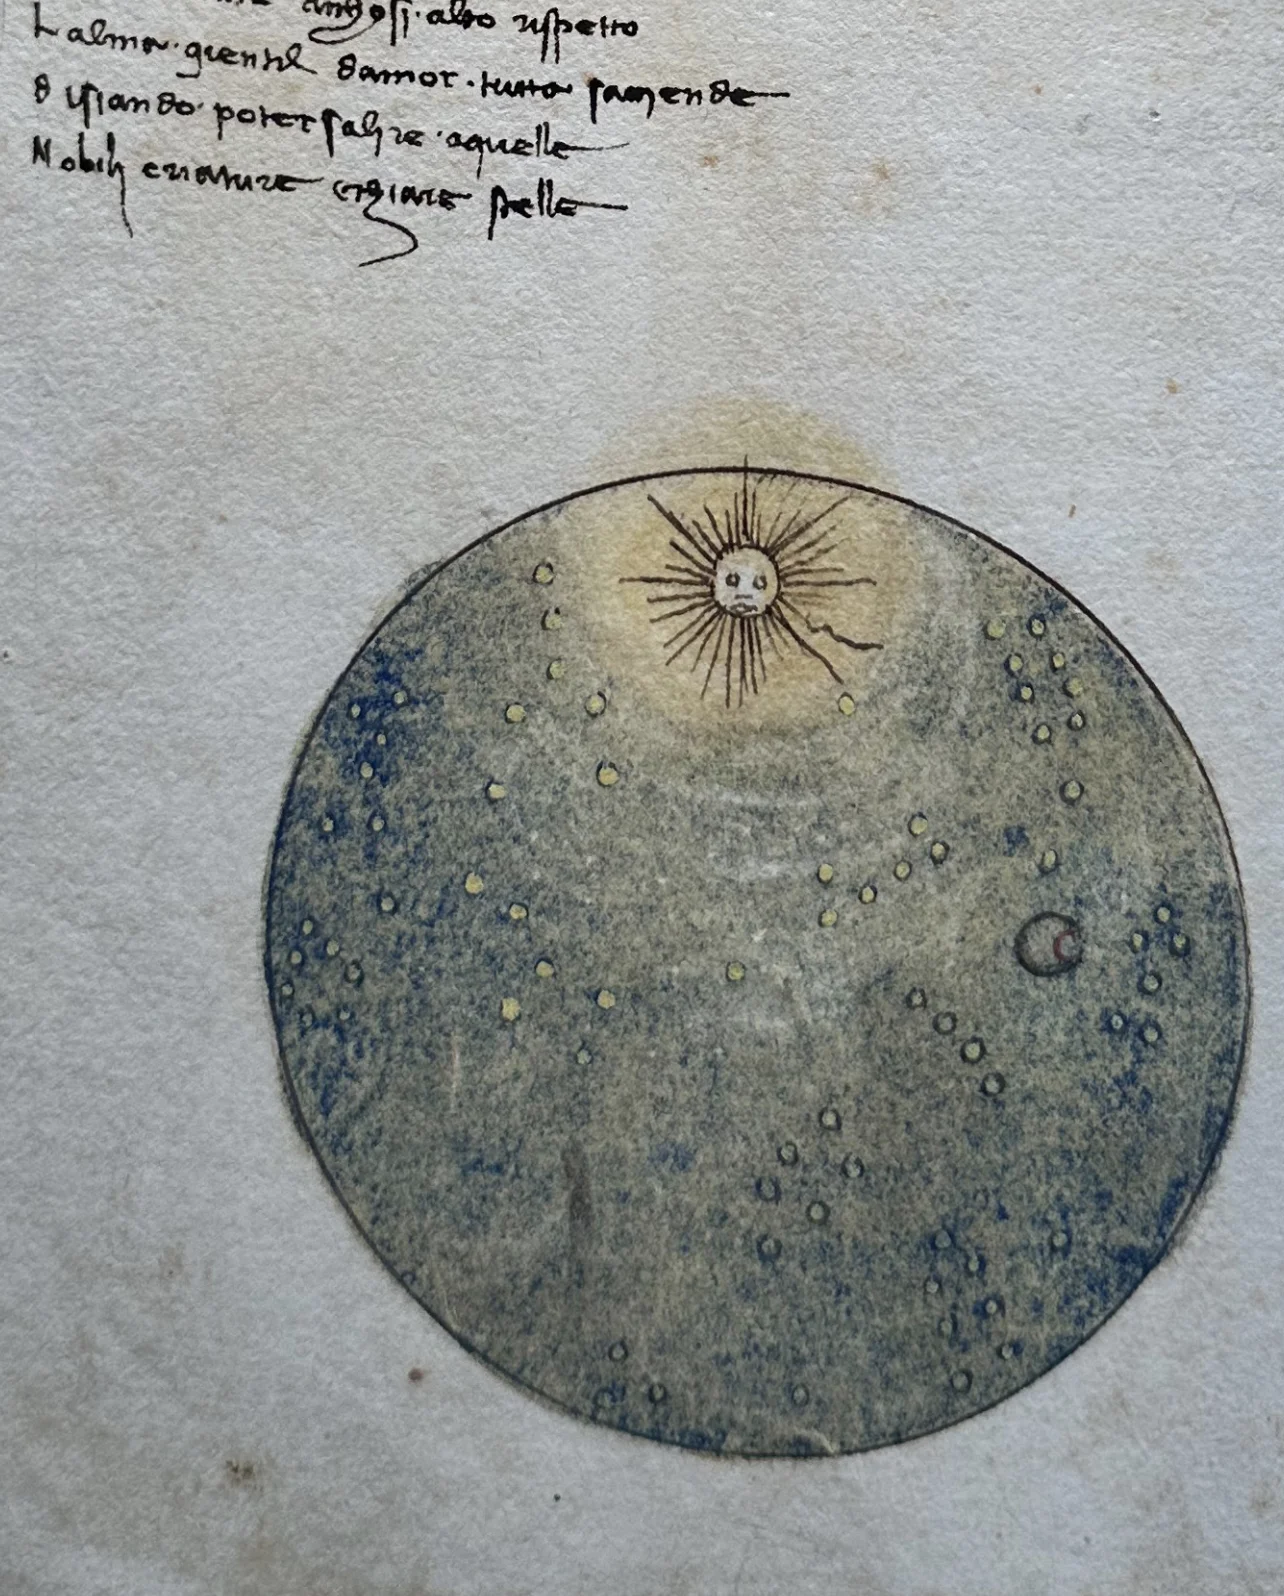 alto rispetto
Lalma gientil damor tutta sacijende
disiando poter salire aquelle
Nobili criature chiare stelle